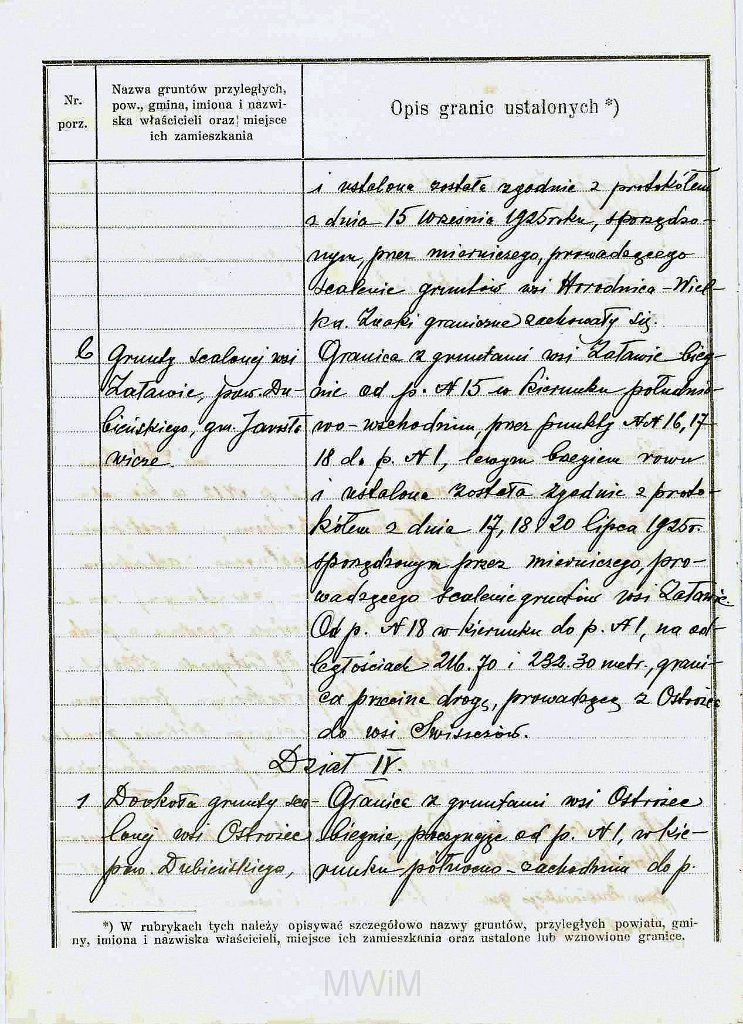 Nr.
porz.
Nazwa gruntów przyległych,
pow., gmina, imiona i nazwi-
ska właścicieli oraz miejsce
ich zamieszkania
Opis granic ustalonych *)
i ustalona została zgodnie z protokółem
z dnia 15 września 1925 roku, sporządzo-
nym, przez mierniczego, prowadzącego
scalenie gruntów wsi Horodnica-Wiel-
ka. Znaki graniczne zachowały się.
Grunty scalonej wsi
Załawie, pow. Du-
bieńskiego, gm. Jarosła
wicze.
Granica z gruntami wsi Załawie bieg-
nie od p. N 15 w kierunku południo-
wo-wschodnim, przez punkty NN 16, 17
18 do p. N 1, lewym brzegiem rowu
i ustalona została zgodnie z proto-
kółem z dnia 17, 18 i 20 lipca 1925 r.
sporządzonym przez mierniczego, pro-
wadzącego scalenie gruntów wsi Załawie.
Od p. N 18 w kierunku do p. N 1, na od-
ległościach 216.70 i 232.30 metr., grani-
ca przecina drogę, prowadzącą z Ostrożec
do wsi Swiszczów.
Dział IV.
1
Dookoła grunty sca-
lonej wsi Ostrożec
pow. Dubieńskiego,
Granica z gruntami wsi Ostrożec
biegnie, poczynając od p. N 1, w kie-
runku północno-zachodnim do p.
*) W rubrykach tych należy opisywać szczegółowo nazwy gruntów, przyległych powiatu, gmi-
ny, imiona i nazwiska właścicieli, miejsce ich zamieszkania oraz ustalone lub wznowione granice.
MWiM